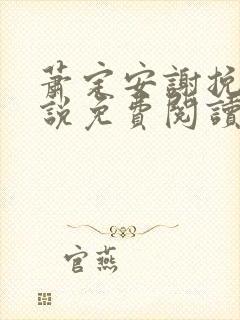 蕭定安謝挽
說免費閱讀
官燕